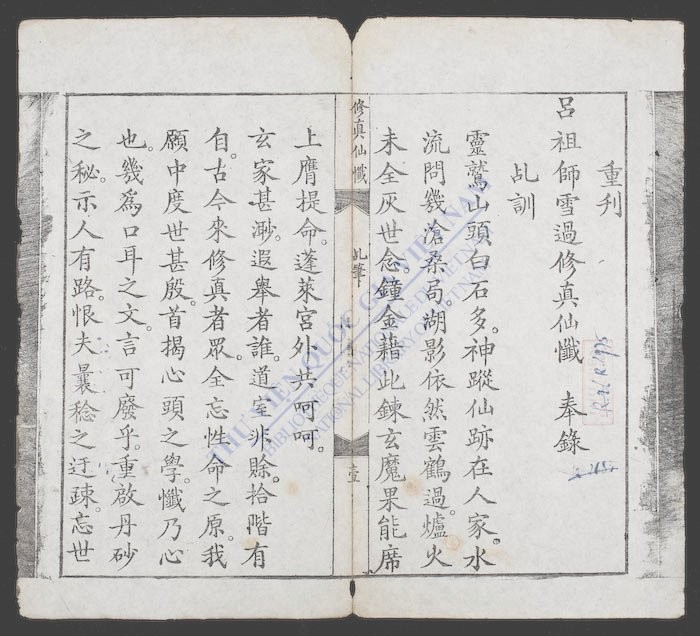 重刋
呂祖師雪過修真仙懺　奉錄
乩訓
靈鷲山頭白石多。神蹤仙跡在人家。水
流問幾滄桑局。湖影依然雲鶴過。爐火
未全灰世念。鐘金藉此鍊玄魔。果能席
修真仙懺
乩筆
壹
上膺提命。蓬萊宮外共呵呵。
玄家甚渺。遐舉者誰。道室非賒。拾階有
自。古今來修真者眾。全忘性命之原。我
願中度世甚殷。首揭心頭之學。懺乃心
也。幾為口耳之文。言可廢乎。重啟丹砂
之秘。示人有路。恨夫曩稔之迂疎。忘世
THƯ VIỆN QUỐC GIA VIỆT NAM
BIBLIOTHÈQUE NATIONALE DU VIETNAM
NATIONAL LIBRARY OF VIETNAM